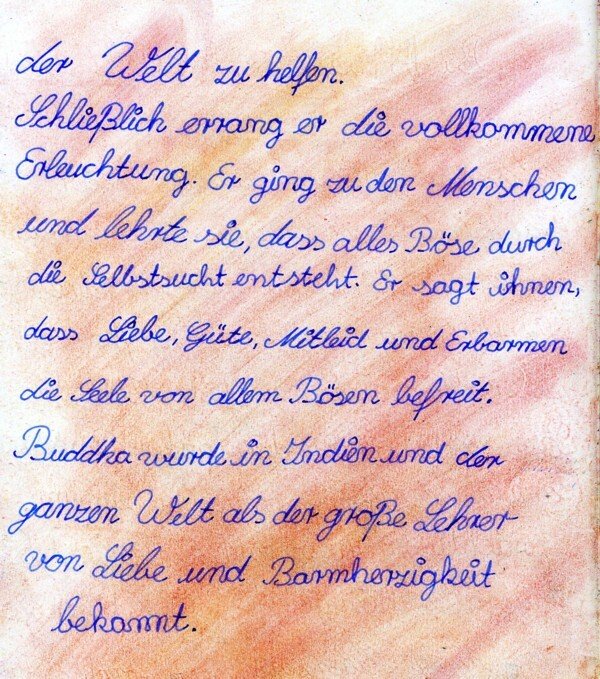 der Welt zu helfen.
Schließlich errang er die vollkommene
Erleuchtung. Er ging zu den Menschen
und lehrte sie, dass alles Böse durch
die Selbstsucht entsteht. Er sagt ihnen,
dass Liebe, Güte, Mitleid und Erbarmen
die Seele von allem Bösen befreit.
Buddha wurde in Indien und der
ganzen Welt als der große Lehrer
von Liebe und Barmherzigkeit
bekannt.